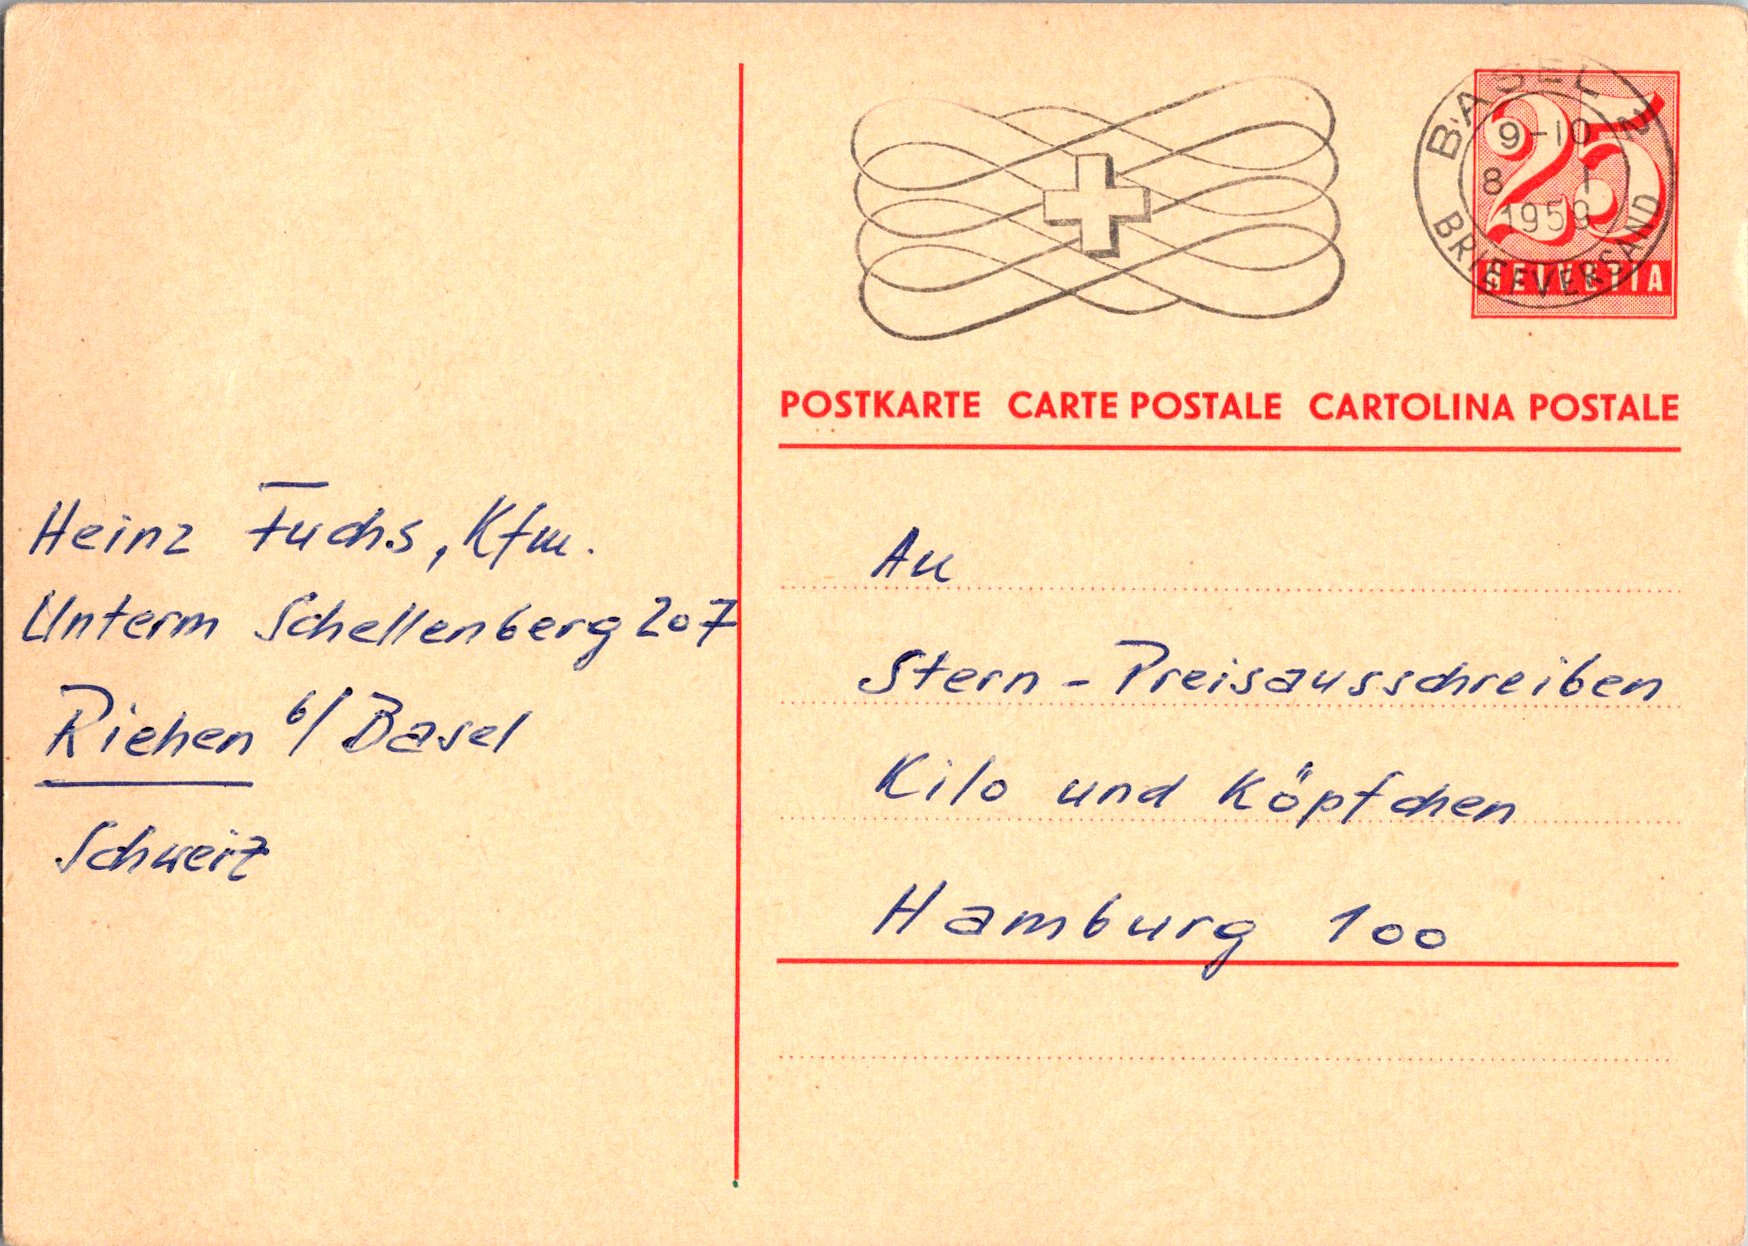 Heinz Fuchs, Kfm.
Unterm Schellenberg 207
Riehen b/Basel
Schweiz
BASEL 2
9-10
8 I
1959
BRIEFVERSAND
25
HELVETIA
POSTKARTE CARTE POSTALE CARTOLINA POSTALE
An
Stern-Preisausschreiben
Kilo und Köpfchen
Hamburg 100